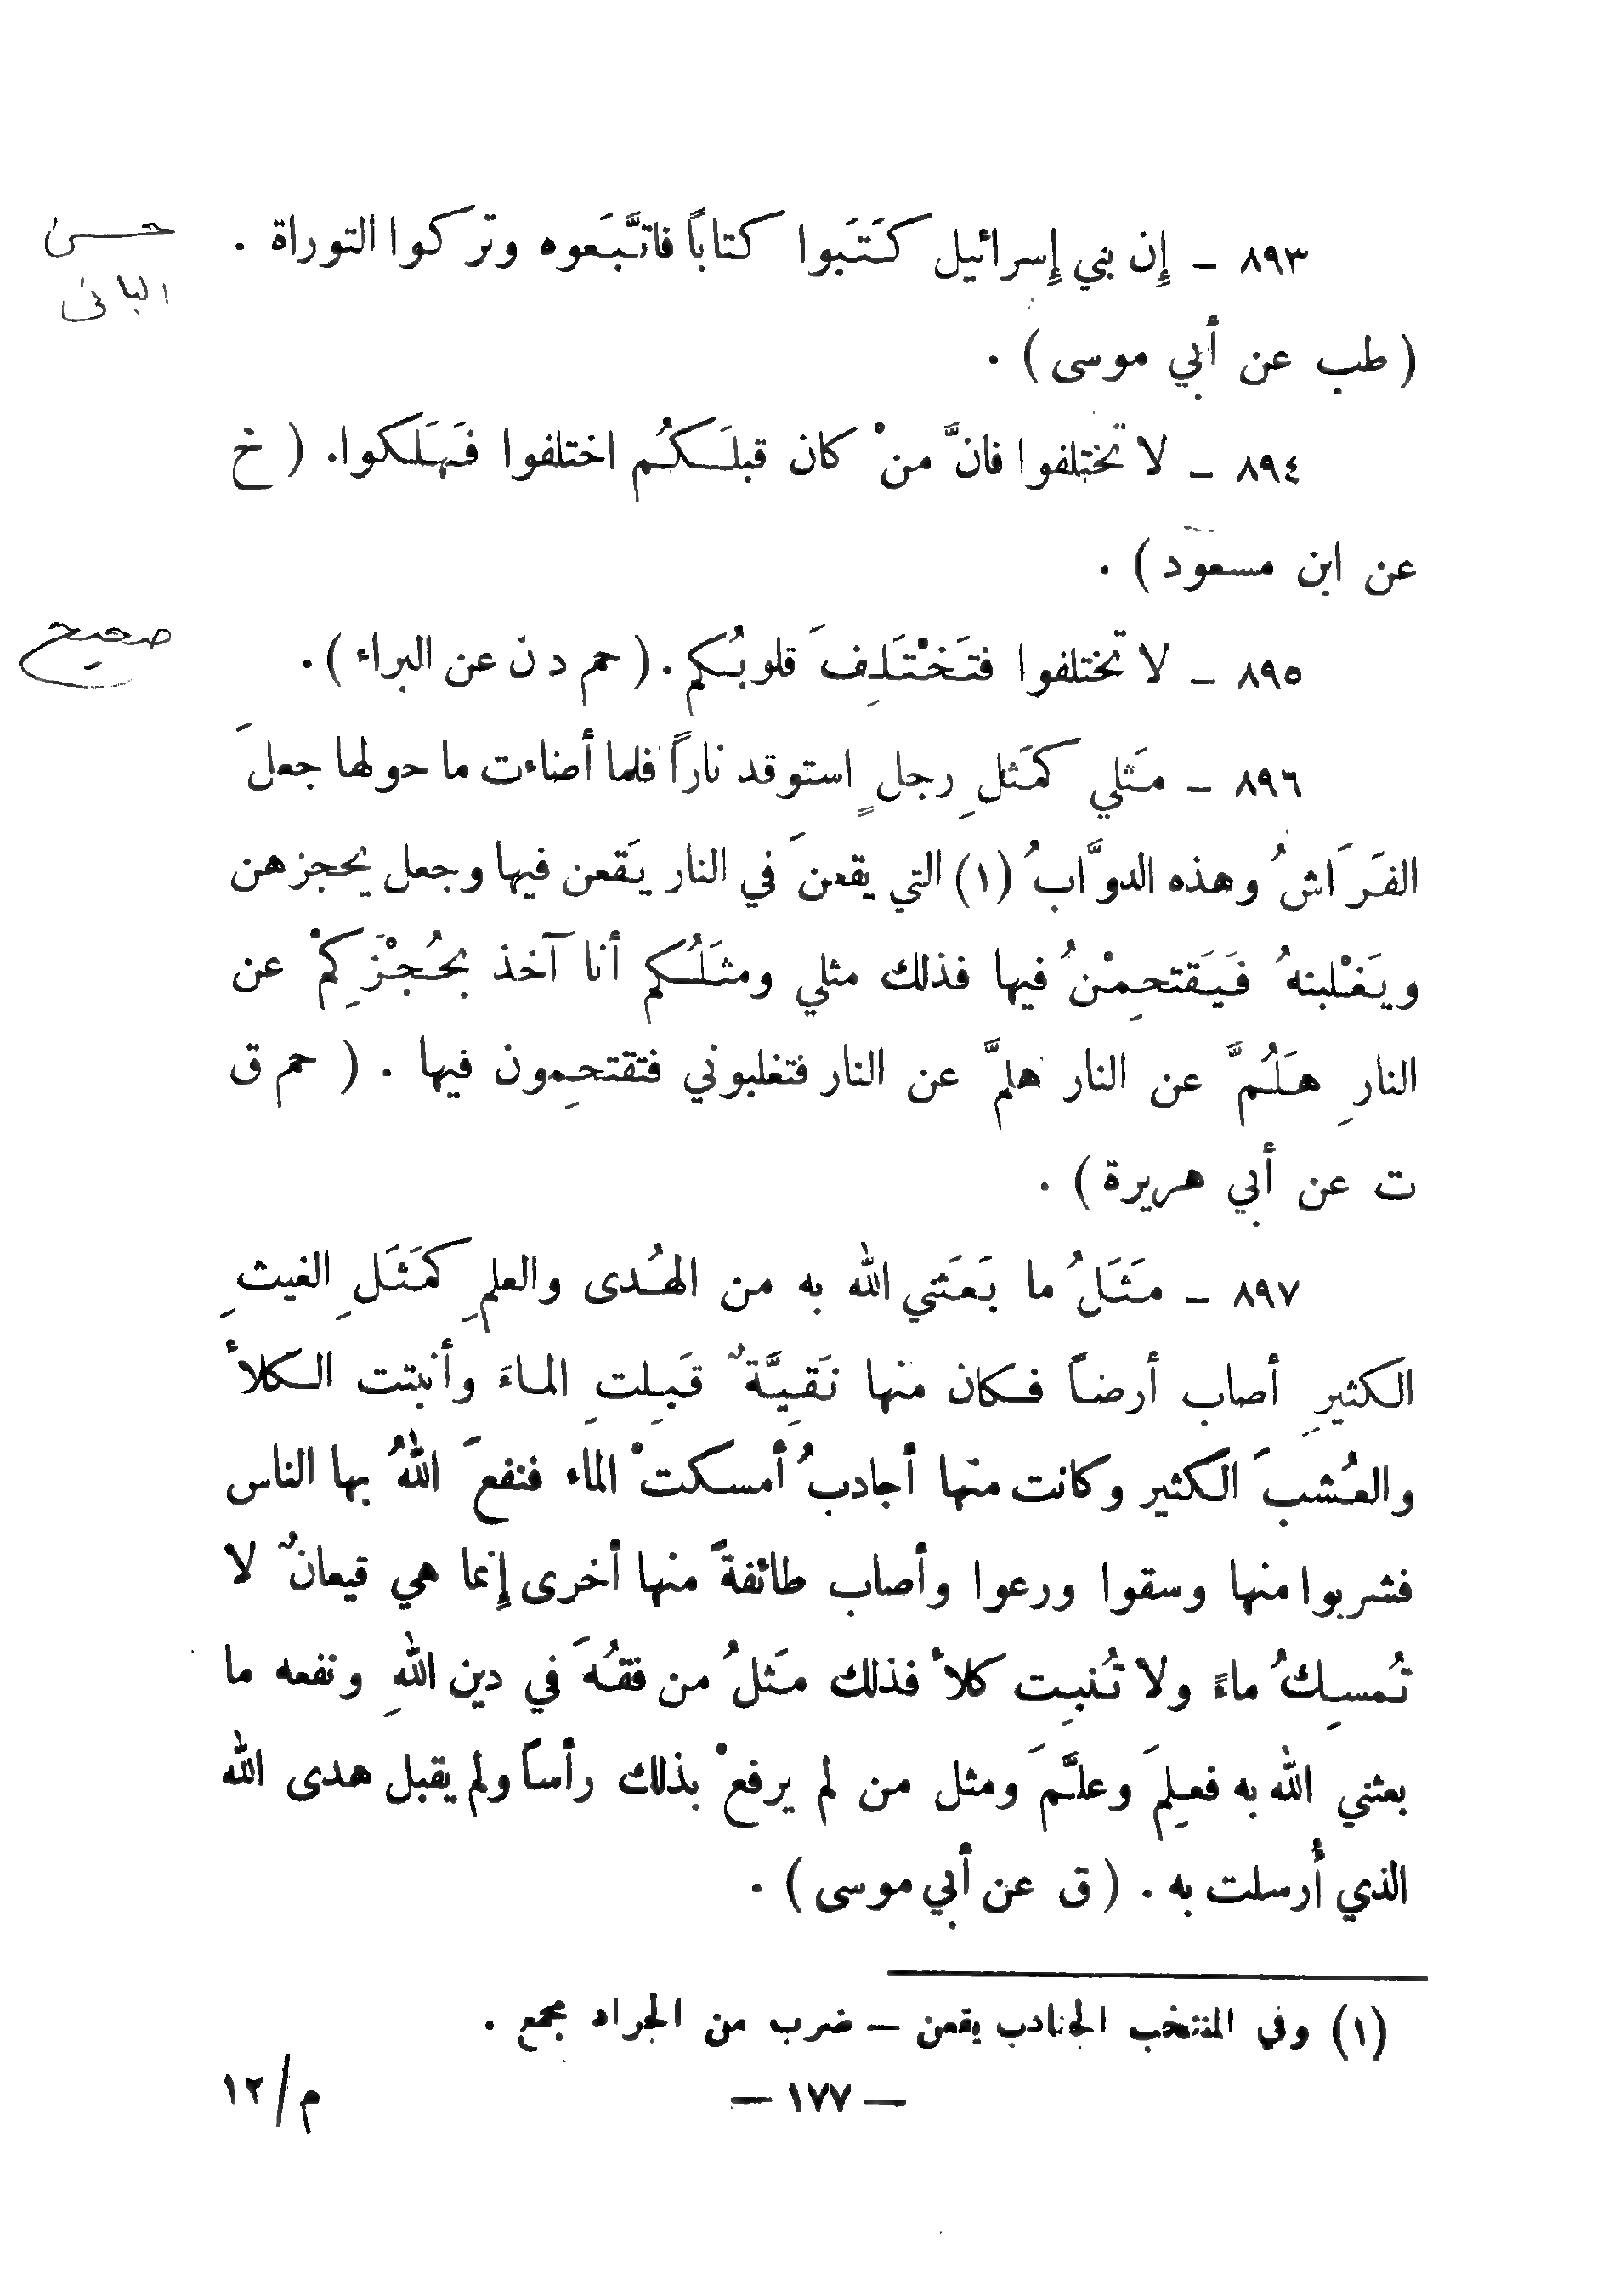 ٨٩٣ – إِن بني إِسرائيل كَتَبوا كتاباً فاتَّبَعوه وتركوا التوراة .
حسن
الباني
( طب عن أبي موسى ) .
٨٩٤ – لا تختلفوا فانَّ منْ كان قبلَكُم اختلفوا فَهَلَكوا. ( خ
عن ابن مسعود ) .
٨٩٥ – لا تختلفوا فتَخْتَلِفَ قلوبُكم . ( حم د ن عن البراء ) .
صحيح
٨٩٦ – مَثلي كمَثلِ رجلٍ استوقد ناراً فلما أضاءت ما حولها جعلَ
الفَرَاشُ وهذه الدوَّابُ (١) التي يقعنَ في النار يَقعن فيها وجعل يحجزهن
ويَغْلبنهُ فَيَقتحِمْنُ فيها فذلك مثلي ومثَلُكم أنا آخذ بحُجْزَكِمْ عن
النارِ هَلُمَّ عن النار هلمَّ عن النار فتغلبوني فتقتحِمون فيها . ( حم ق
ت عن أبي هريرة ) .
٨٩٧ – مَثَلُ ما بَعَثني الله به من الهُدى والعلمِ كمَثَلِ الغيثِ
الكثيرِ أصاب أرضاً فكان منها نَقِيَّةٌ قَبِلتِ الماءَ وأنبتت الكلأ
والعُشبَ الكثير وكانت منها أجادبُ أمسكتْ الماء فنفعَ اللهُ بها الناس
فشربوا منها وسقوا ورعوا وأصاب طائفةً منها أخرى إِنما هي قيعانٌ لا
تُمسِكُ ماءً ولا تُنبِت كلأ فذلك مَثلُ من فقُهَ في دين اللهِ ونفعه ما
بعثني الله به فعلِمَ وعلَّمَ ومثل من لم يرفعْ بذلك رأساً ولم يقبل هدى الله
الذي أُرسلت به . ( ق عن أبي موسى ) .
(١) وفي المنتخب الجنادب يقعن – ضرب من الجراد مجمع .
– ١٧٧ –
م/١٢